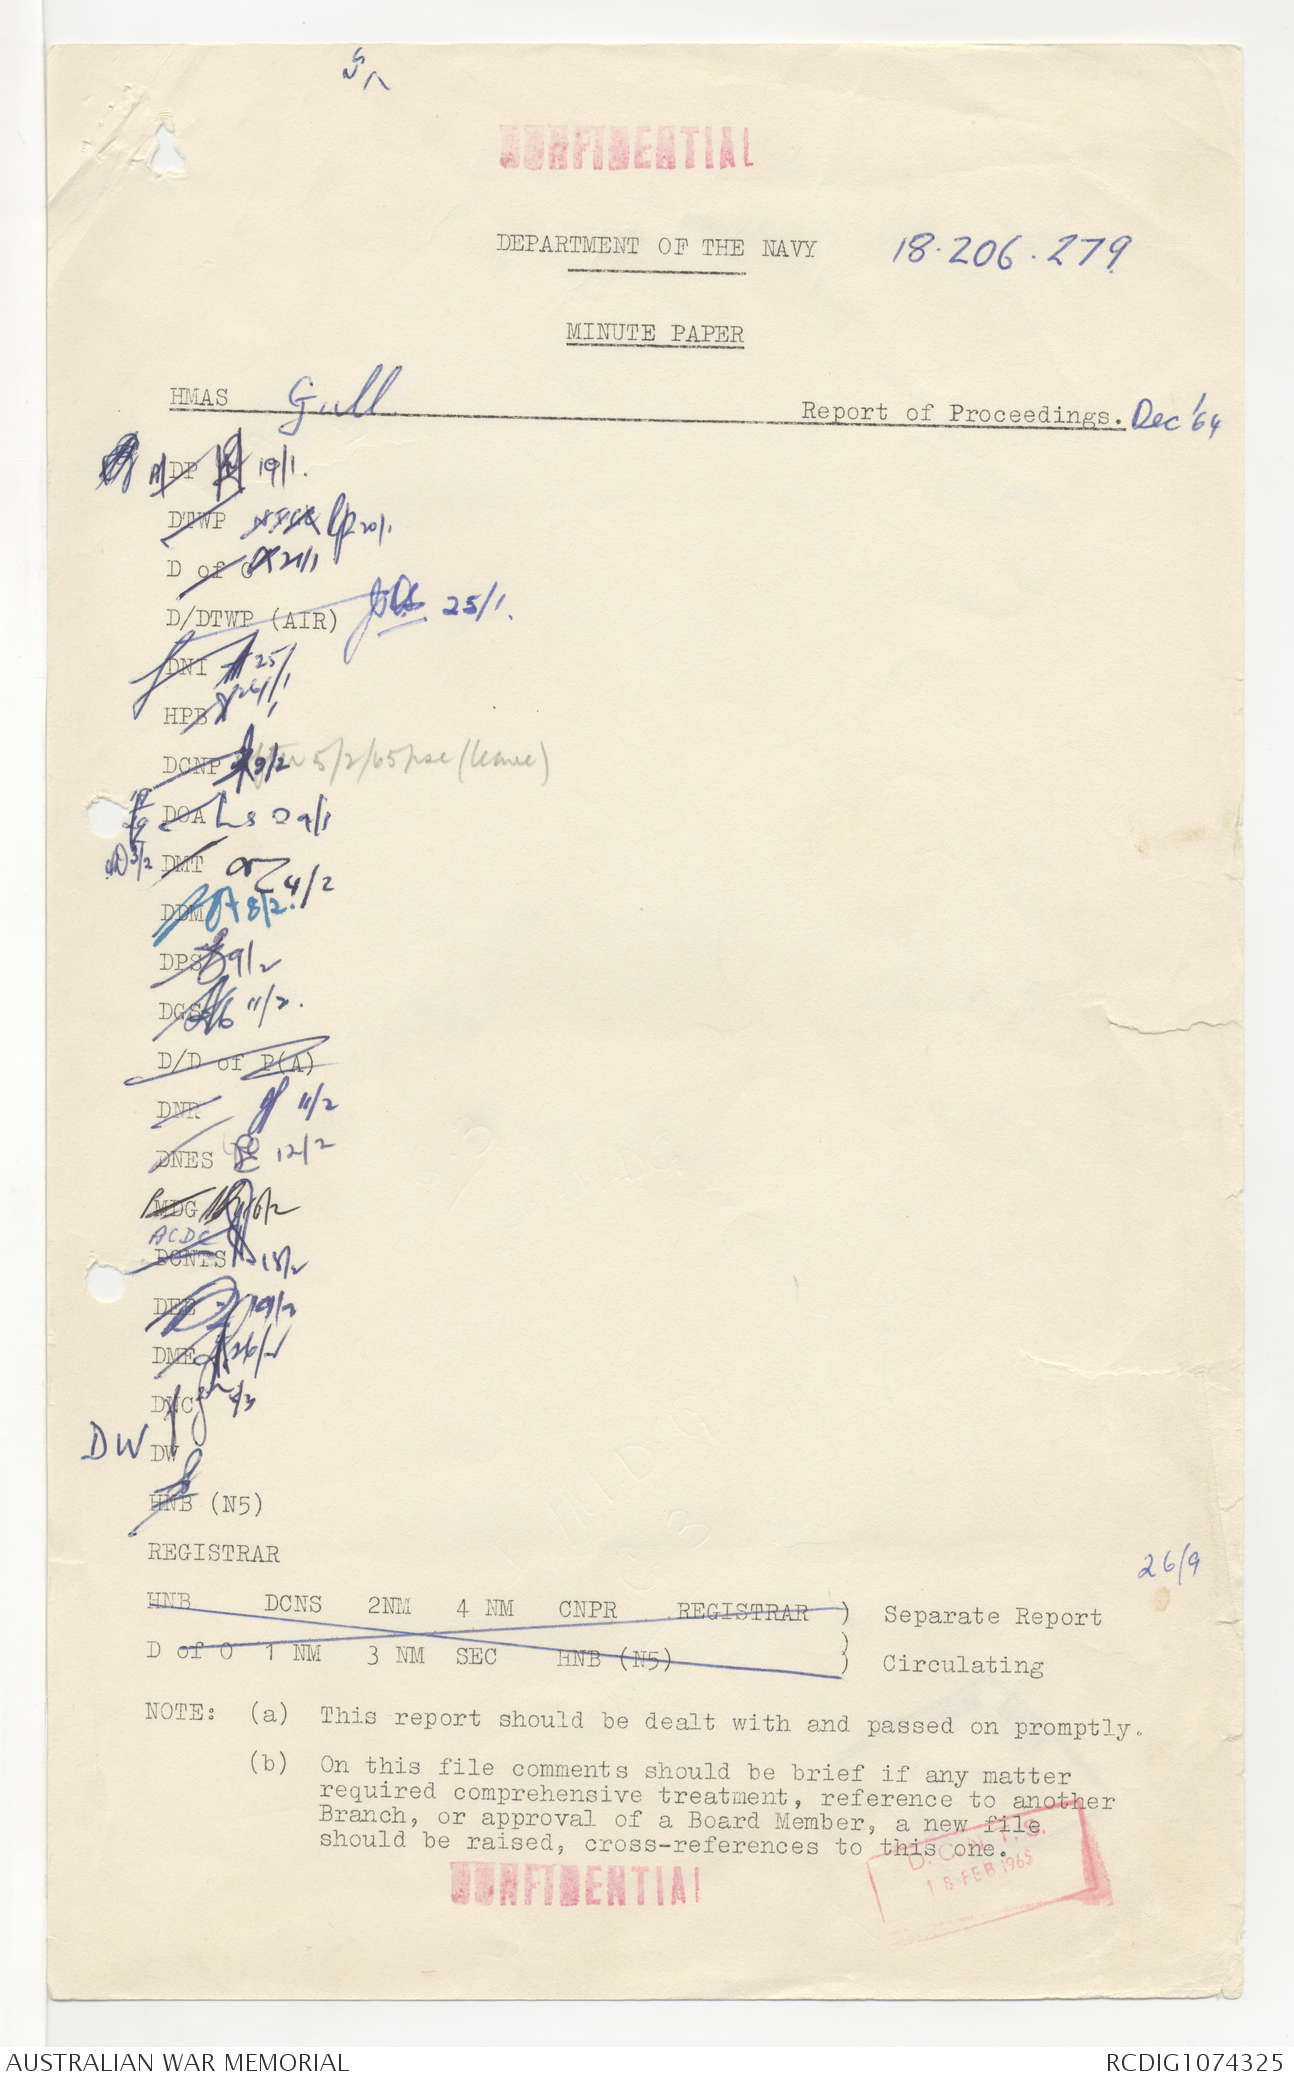 CONFIDENTIAL
DEPARTMENT OF THE NAVY 18.206.279
MINUTE PAPER
HMAS Gull Report of Proceedings. Dec '64
A/DP 19/1.
DTWP 20/1
D of O 21/1
D/DTWP (AIR) 25/1.
DNI 25/1
HPB 26/1
DCNP 9/2 5/2/65 pse (leave)
DOA 29/1
3/2 DMT 4/2
DDM 8/2.
DPS 9/2
DGS 11/2.
D/D of P(A)
DNR 11/2
DNES 12/2
MDG 16/2
ACDC
DCNTS 18/2
DEE 19/2
DME 26/2
DNC 4/3
DW DW
HNB (N5)
REGISTRAR
26/9
HNB DCNS 2NM 4 NM CNPR REGISTRAR ) Separate Report
)
D of O 1 NM 3 NM SEC HNB (N5) ) Circulating
NOTE: (a) This report should be dealt with and passed on promptly.
(b) On this file comments should be brief if any matter
required comprehensive treatment, reference to another
Branch, or approval of a Board Member, a new file
should be raised, cross-references to this one.
D.C.N.T.S.
18 FEB 1965
CONFIDENTIAL
AUSTRALIAN WAR MEMORIAL RCDIG1074325